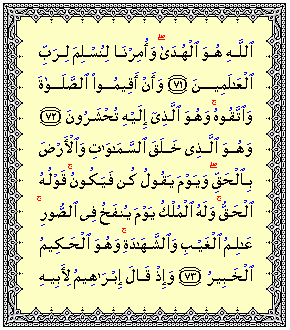 ٱللَّهِ هُوَ ٱلْهُدَىٰ ۖ وَأُمِرْنَا لِنُسْلِمَ لِرَبِّ
ٱلْعَـٰلَمِينَ ﴿٧١﴾ وَأَنْ أَقِيمُوا۟ ٱلصَّلَوٰةَ
وَٱتَّقُوهُ ۚ وَهُوَ ٱلَّذِىٓ إِلَيْهِ تُحْشَرُونَ ﴿٧٢﴾
وَهُوَ ٱلَّذِى خَلَقَ ٱلسَّمَـٰوَٰتِ وَٱلْأَرْضَ
بِٱلْحَقِّ ۖ وَيَوْمَ يَقُولُ كُن فَيَكُونُ ۚ قَوْلُهُ
ٱلْحَقُّ ۚ وَلَهُ ٱلْمُلْكُ يَوْمَ يُنفَخُ فِى ٱلصُّورِ ۚ
عَـٰلِمُ ٱلْغَيْبِ وَٱلشَّهَـٰدَةِ ۚ وَهُوَ ٱلْحَكِيمُ
ٱلْخَبِيرُ ﴿٧٣﴾ وَإِذْ قَالَ إِبْرَٰهِيمُ لِأَبِيهِ